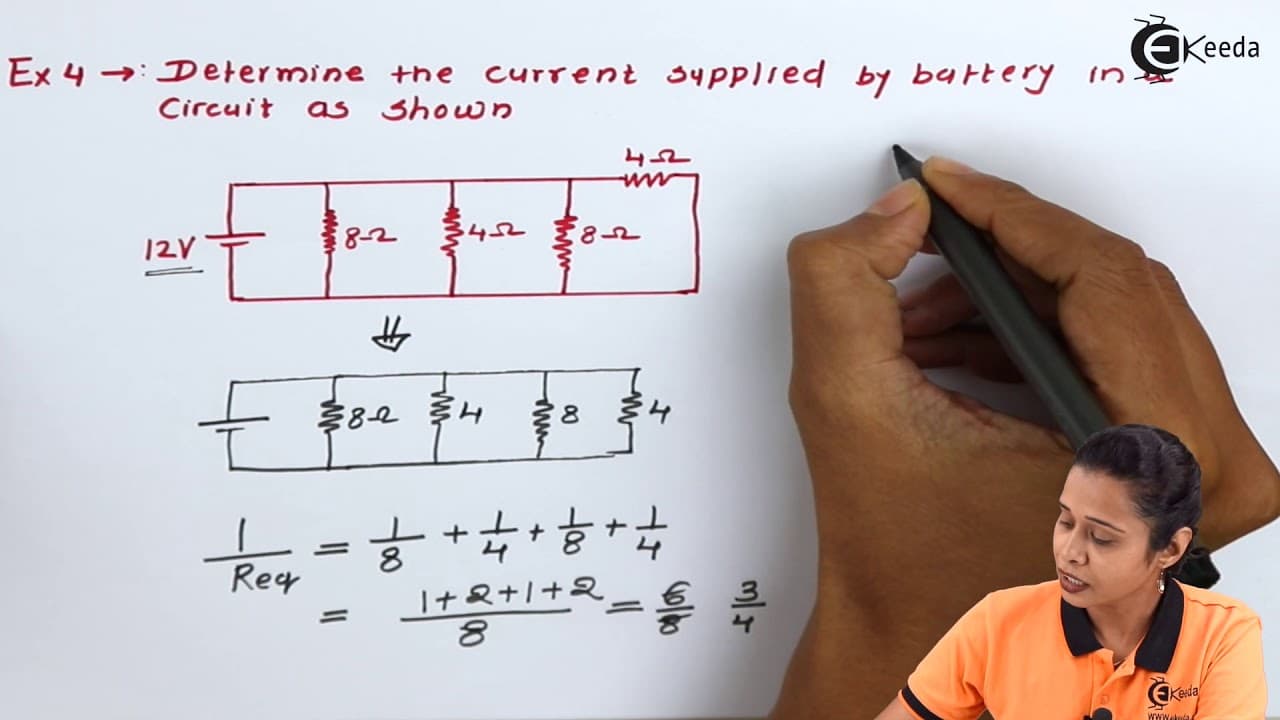 Keeda
Ex 4 →: Determine the current supplied by battery in a
Circuit as shown
4Ω
12V 8Ω 4Ω 8Ω
8Ω 4 8 4
1/Req = 1/8 + 1/4 + 1/8 + 1/4
= 1+2+1+2/8 = 6/8 3/4
Keeda